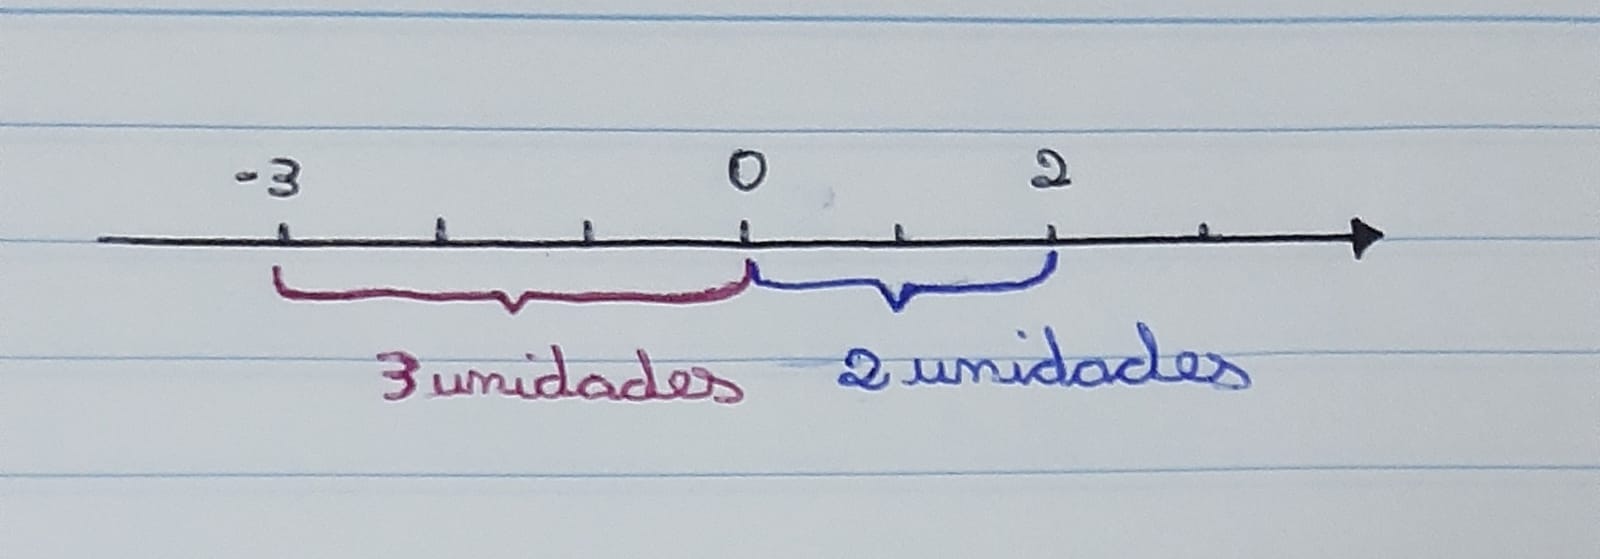 -3 0 2
3 unidades 2 unidades